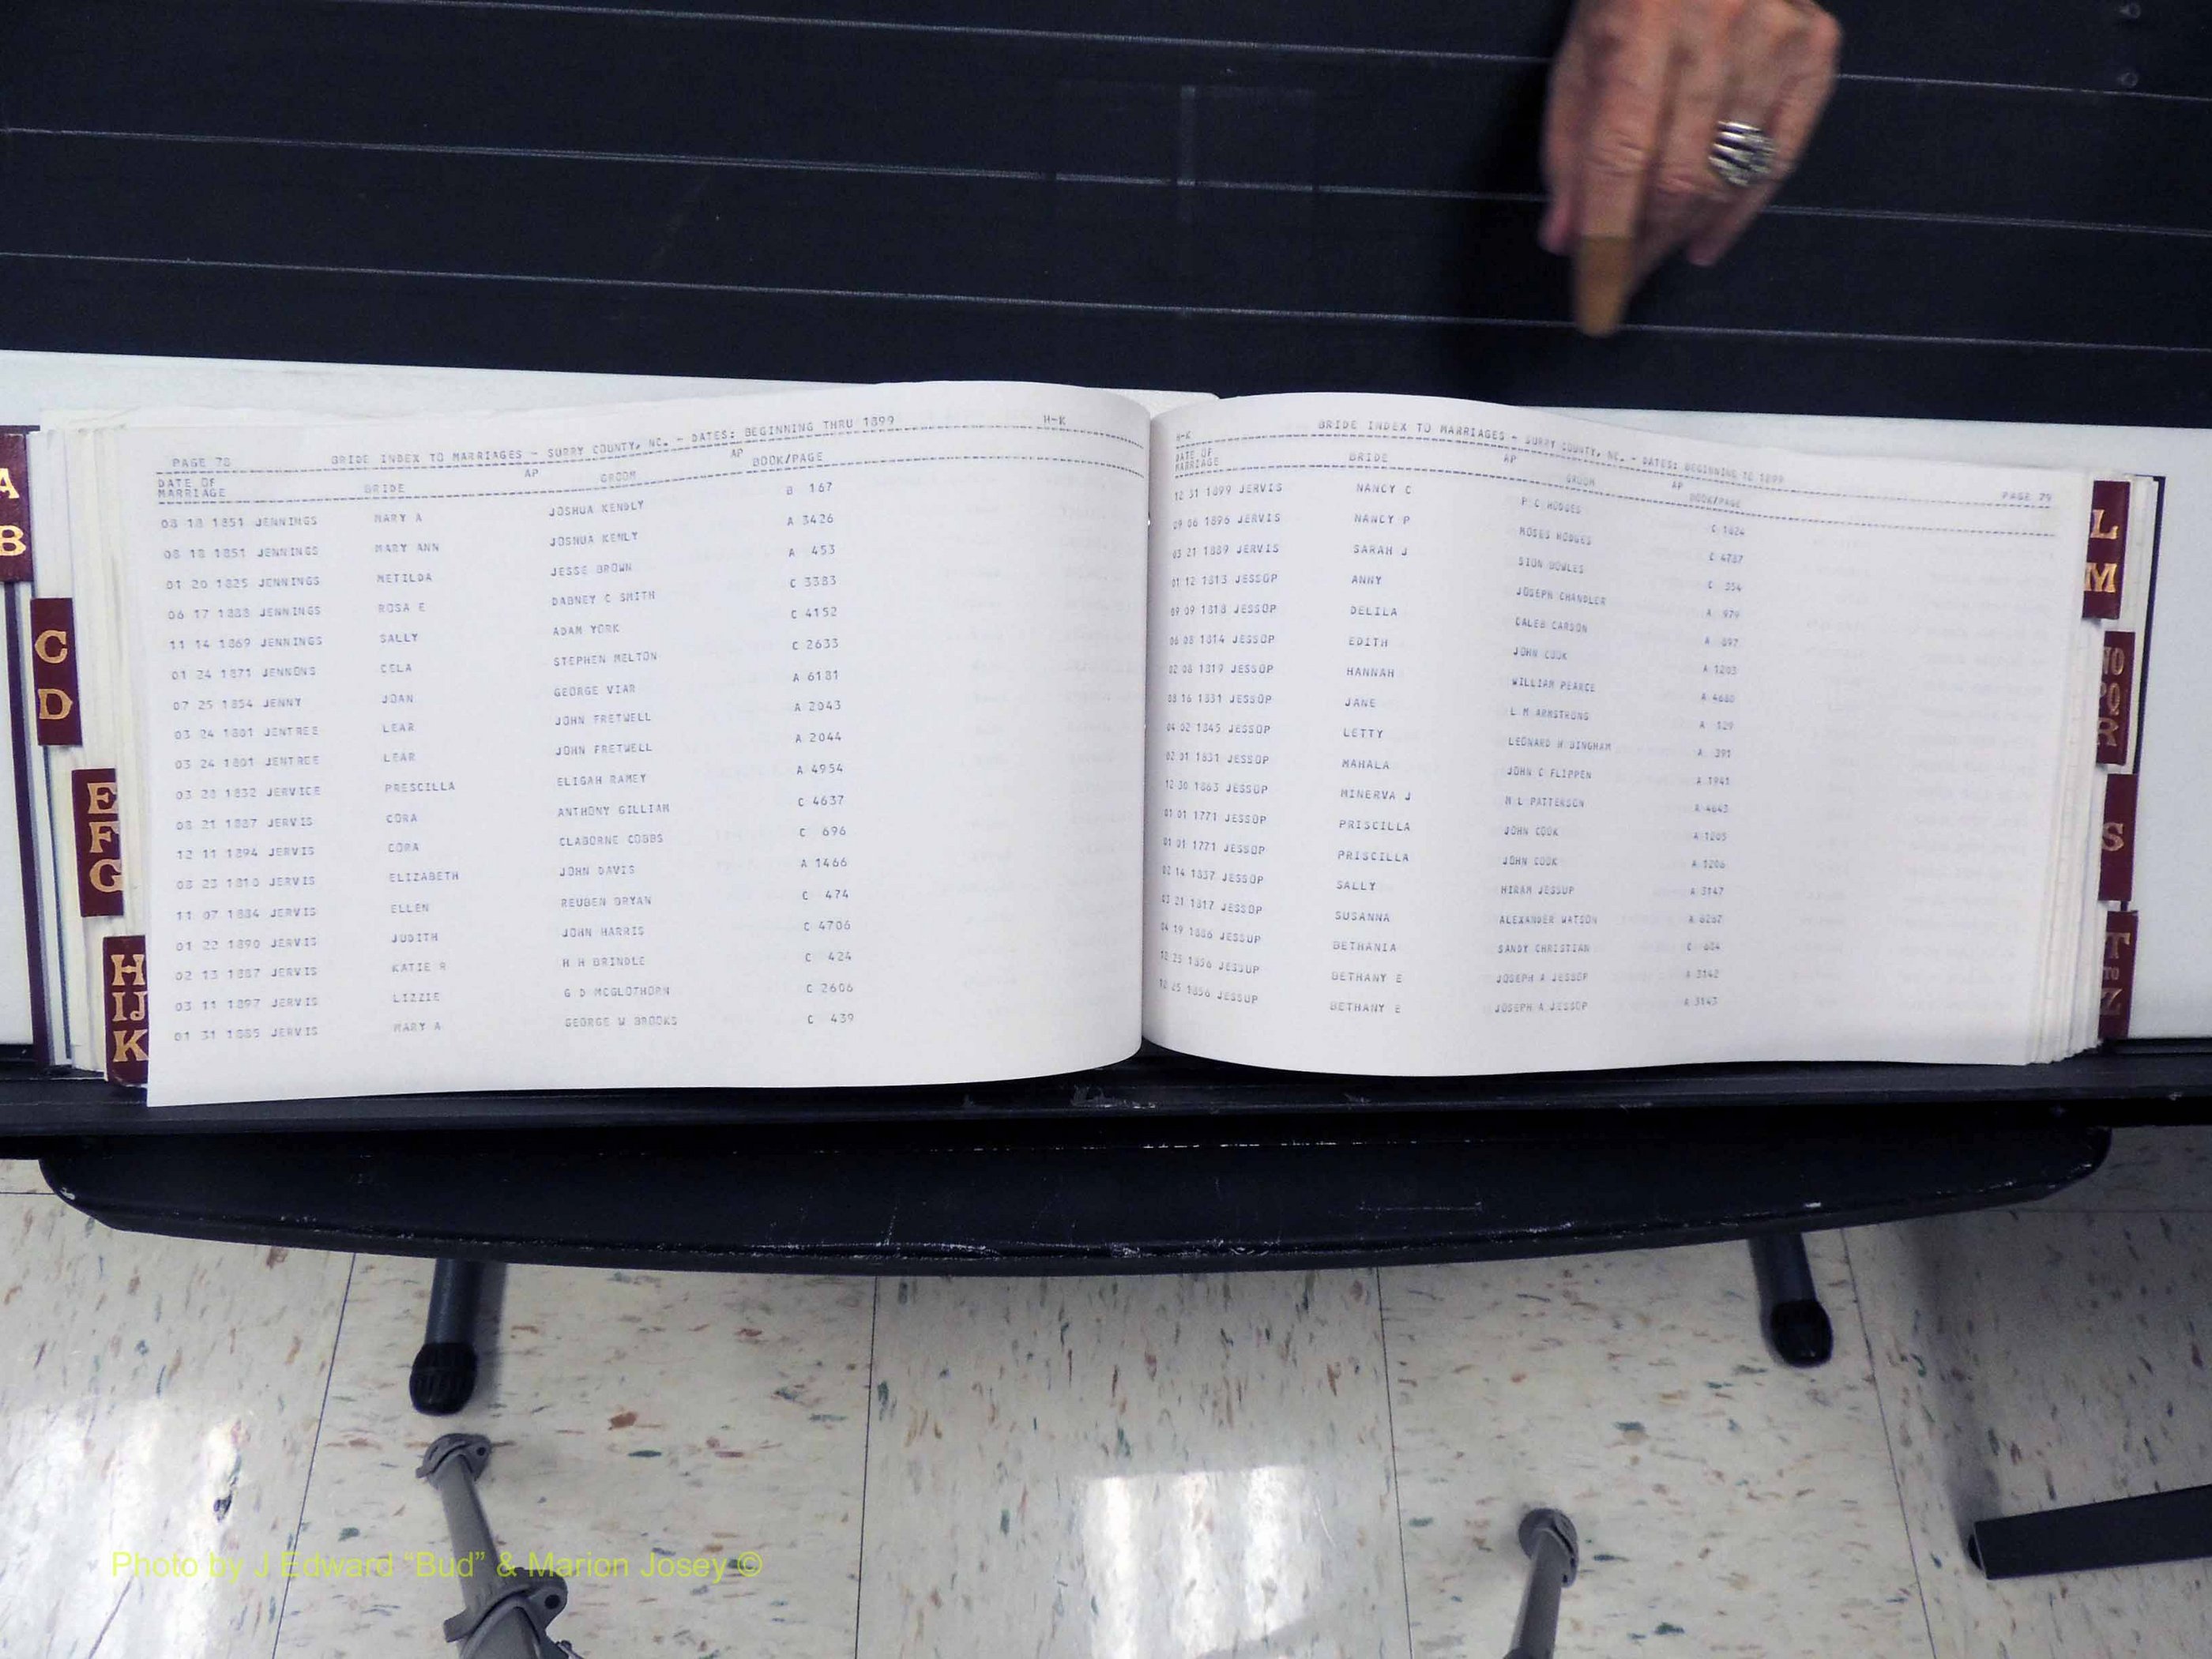 PAGE 78 BRIDE INDEX TO MARRIAGES - SURRY COUNTY, NC. - DATES: BEGINNING THRU 1899 H-K
DATE OF MARRIAGE BRIDE AP GROOM AP BOOK/PAGE
08 18 1851 JENNINGS MARY A JOSHUA KENDLY B 167
08 18 1851 JENNINGS MARY ANN JOSHUA KENLY A 3426
01 20 1825 JENNINGS METILDA JESSE BROWN A 453
06 17 1888 JENNINGS ROSA E DABNEY C SMITH C 3383
11 14 1869 JENNINGS SALLY ADAM YORK C 4152
01 24 1871 JENNONS CELA STEPHEN MELTON C 2633
07 25 1854 JENNY JOAN GEORGE VIAR A 6181
03 24 1801 JENTREE LEAR JOHN FRETWELL A 2043
03 24 1801 JENTREE LEAR JOHN FRETWELL A 2044
03 28 1832 JERVICE PRESCILLA ELIGAH RAMEY A 4954
08 21 1887 JERVIS CORA ANTHONY GILLIAM C 4637
12 11 1894 JERVIS CORA CLABORNE COBBS C 696
08 23 1810 JERVIS ELIZABETH JOHN DAVIS A 1466
11 07 1884 JERVIS ELLEN REUBEN BRYAN C 474
01 22 1890 JERVIS JUDITH JOHN HARRIS C 4706
02 13 1887 JERVIS KATIE R H H BRINDLE C 424
03 11 1897 JERVIS LIZZIE G D MCGLOTHORN C 2606
01 31 1885 JERVIS MARY A GEORGE W BROOKS C 439
H-K BRIDE INDEX TO MARRIAGES - SURRY COUNTY, NC. - DATES: BEGINNING TO 1899 PAGE 79
DATE OF MARRIAGE BRIDE AP GROOM AP BOOK/PAGE
12 31 1899 JERVIS NANCY C P C HODGES C 1824
09 06 1896 JERVIS NANCY P MOSES HODGES C 4787
03 21 1889 JERVIS SARAH J SION BOWLES C 354
01 12 1813 JESSOP ANNY JOSEPH CHANDLER A 979
09 09 1818 JESSOP DELILA CALEB CARSON A 897
06 08 1814 JESSOP EDITH JOHN COOK A 1203
02 08 1819 JESSOP HANNAH WILLIAM PEARCE A 4680
03 16 1831 JESSOP JANE L M ARMSTRONG A 129
04 02 1845 JESSOP LETTY LEONARD H BINGHAM A 391
02 01 1831 JESSOP MAHALA JOHN C FLIPPEN A 1941
12 30 1863 JESSOP MINERVA J PATTERSON A 4643
01 01 1771 JESSOP PRISCILLA JOHN COOK A 1205
01 01 1771 JESSOP PRISCILLA JOHN COOK A 1206
02 14 1837 JESSOP SALLY HIRAM JESSUP A 3147
03 21 1817 JESSOP SUSANNA ALEXANDER WATSON A 6267
04 19 1886 JESSUP BETHANIA SANDY CHRISTIAN C 684
10 25 1856 JESSUP BETHANY E JOSEPH A JESSOP A 3142
10 25 1856 JESSUP BETHANY E JOSEPH A JESSOP A 3143
A
B
C
D
E
F
G
H
IJ
K
L
M
S
T
TO
Z
Photo by J Edward “Bud” & Marion Josey ©